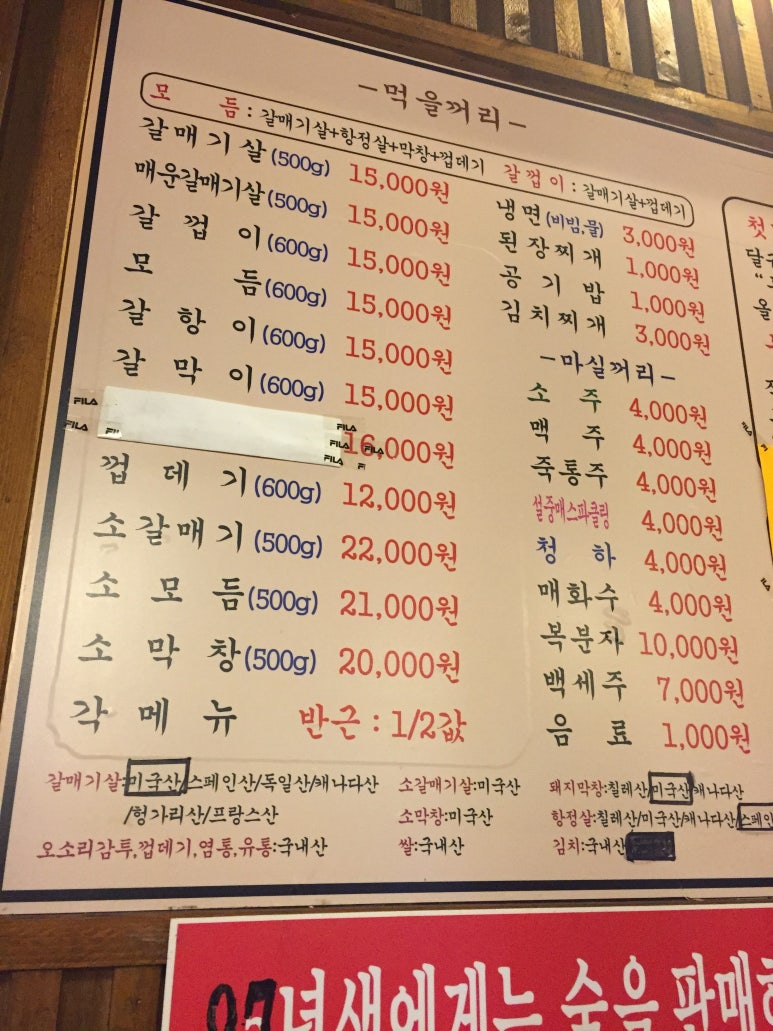 -먹을꺼리-
모 듬 : 갈매기살+항정살+막창+껍데기 갈껍이 : 갈매기살+껍데기
갈매기살(500g) 15,000원
매운갈매기살(500g) 15,000원
갈껍이(600g) 15,000원
모듬(600g) 15,000원
갈항이(600g) 15,000원
갈막이(600g) 15,000원
FILA FILA FILA FILA
FILA FILA FILA
16,000원
껍데기(600g) 12,000원
소갈매기(500g) 22,000원
소모듬(500g) 21,000원
소막창(500g) 20,000원
각메뉴 반근 : 1/2값
냉면(비빔,물) 3,000원
된장찌개 1,000원
공기밥 1,000원
김치찌개 3,000원
-마실꺼리-
소주 4,000원
맥주 4,000원
죽통주 4,000원
설중매스파클링 4,000원
청하 4,000원
매화수 4,000원
복분자 10,000원
백세주 7,000원
음료 1,000원
갈매기살:미국산/스페인산/독일산/캐나다산
/헝가리산/프랑스산
오소리감투,껍데기,염통,유통:국내산
소갈매기살:미국산
소막창:미국산
쌀:국내산
돼지막창:칠레산/미국산/캐나다산
항정살:칠레산/미국산/캐나다산/스페인
김치:국내산
97년생에게는 술을 판매